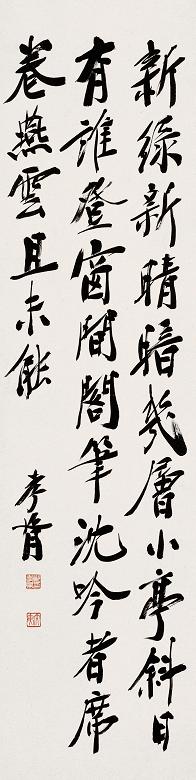 新綠新晴暗幾層小亭斜日
有誰登窗間閣筆沈吟者席
卷燕雲且未能
孝胥